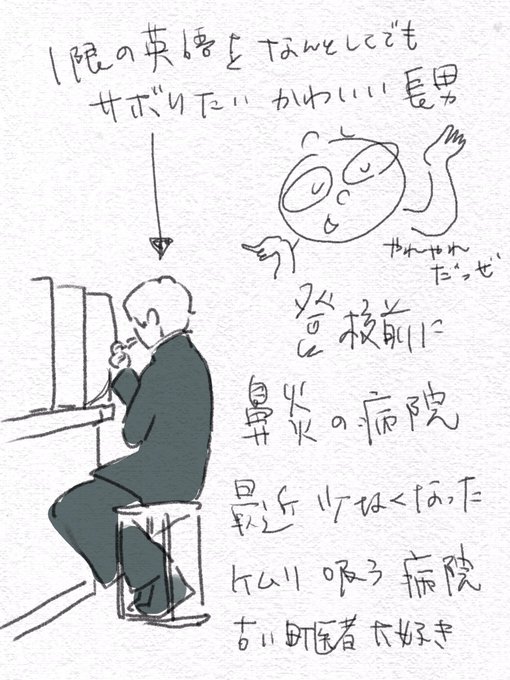 1限の英語をなんとしてでも
サボりたいかわいい長男
やれやれ
だっぜ
登校前に
鼻炎の病院
最近少なくなった
ケムリ吸う病院
古い町医者大好き